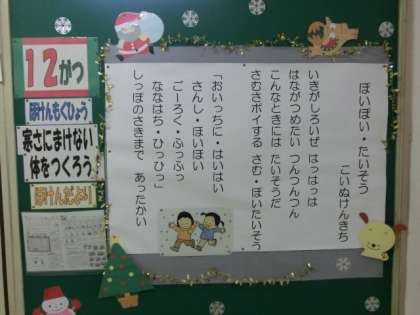 12がつ
ほけんもくひょう
寒さにまけない
体をつくろう
ほけんだより
ぽいぽい・たいそう
こいぬけんきち
いきがしろいぜ はっはっは
はながつめたい つんつんつん
こんなときには たいそうだ
さむさポイする さむ・ぽいたいそう
「おいっちに・はいはい
さんし・ほいほい
ごーろく・ふっふっ
ななはち・ひっひっ」
しっぽのさきまで あったかい